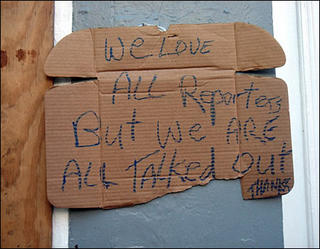 We Love
ALL Reporters
But we ARE
ALL TALKed OuT
THANKS